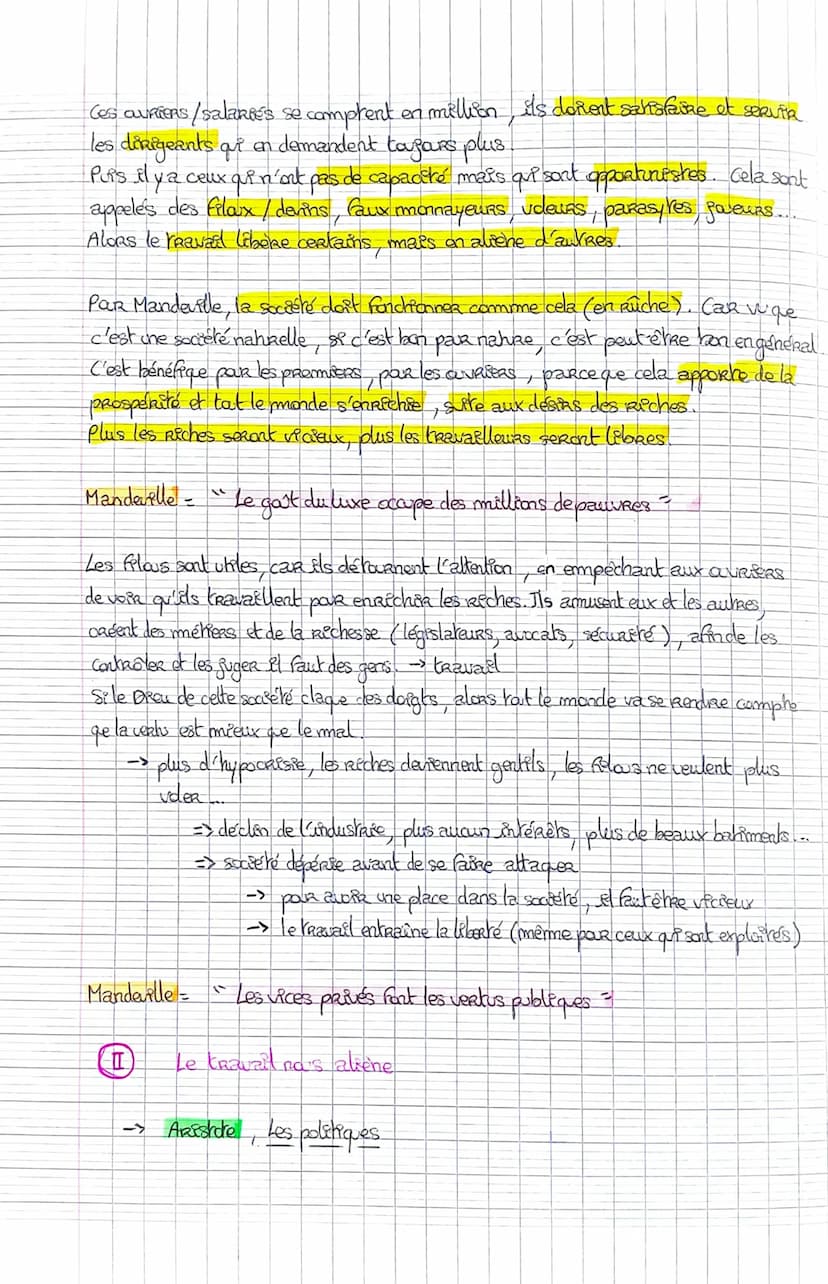 Ces ouvriers/salariés se comptent en million, ils doivent satisfaire et servir
les dirigeants qui en demandent toujours plus.
Puis il y a ceux qui n'ont pas de capacité mais qui sont opportunistes. Cela sont
appelés des filous / devins, faux monnayeurs, voleurs, parasytes, joueurs...
Alors le travail libère certains, mais on aliène d'autres.
Par Mandeville, la société doit fonctionner comme cela (en rûche). Car vu que
c'est une société naturelle, si c'est bon par nature, c'est peut-être bon en général
C'est bénéfique pour les premiers, pour les ouvriers, parce que cela apporte de la
prospérité et tout le monde s'enrichie, suite aux désirs des riches.
Plus les riches seront vicieux, plus les travailleurs seront libres.
Mandeville = "Le goût du luxe occupe des millions de pauvres"
Les filous sont utiles, car ils détournent l'attention, en empêchant aux ouvriers
de voir qu'ils travaillent pour enrichir les riches. Ils amusent eux et les autres,
créent des métiers et de la richesse (législateurs, avocats, sécurité), afin de les
contrôler et les juger il faut des gens. → travail
Si le Dieu de cette société claque des doigts, alors tout le monde va se rendre compte
que la vertu est mieux que le mal.
→ plus d'hypocrisie, les riches deviennent gentils, les filous ne veulent plus
voler...
=> déclin de l'industrie, plus aucun intérêts, plus de beaux batiments...
=> société dépérie avant de se faire attaquer
→ pour avoir une place dans la société, il faut être vicieux
→ le travail entraine la liberté (même pour ceux qui sont exploités)
Mandeville = "Les vices privés font les vertus publiques"
II Le travail nous aliène
→ Aristote, Les politiques